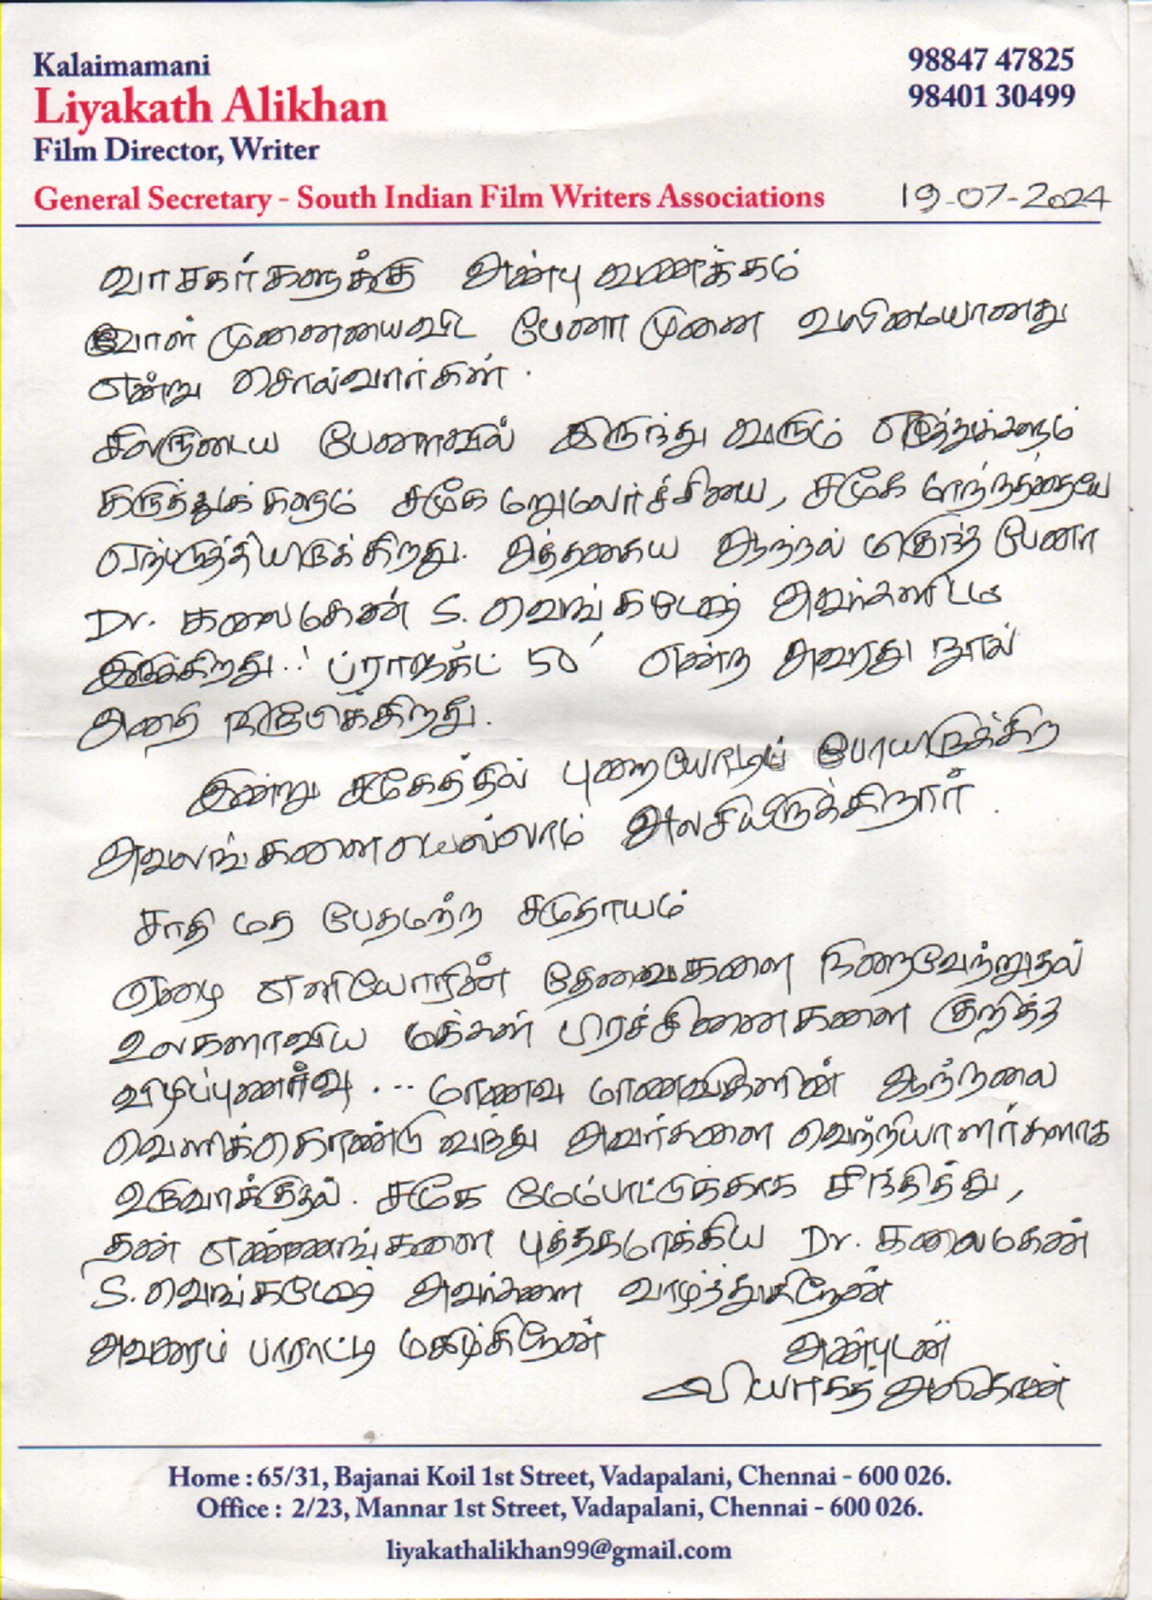 Kalaimamani
Liyakath Alikhan
Film Director, Writer
General Secretary - South Indian Film Writers Associations
98847 47825
98401 30499
19-07-2024
வாசகர்களுக்கு அன்பு வணக்கம்
வாள் முனையைவிட பேனா முனை வலிமையானது
என்று சொல்வார்கள்.
சிலருடைய பேனாவில் இருந்து வரும் எழுத்துக்களும்
கருத்துக்களும் சமூக மறுமலர்ச்சியை, சமூக மாற்றத்தையே
ஏற்படுத்தியிருக்கிறது. அத்தகைய ஆற்றல் மிகுந்த பேனா
Dr. கலைமகன் S. வெங்கடேஷ் அவர்களிடம்
இருக்கிறது..! ப்ராஜக்ட் 50' என்ற அவரது நூல்
அதை நிரூபிக்கிறது.
இன்று சமூகத்தில் புரையோடிப் போயிருக்கிற
அவலங்களையெல்லாம் அலசியிருக்கிறார்.
சாதி மத பேதமற்ற சமுதாயம்
ஏழை எளியோரின் தேவைகளை நிறைவேற்றுதல்
உலகளாவிய மக்கள் பிரச்சினைகளை குறித்த
விழிப்புணர்வு ... மாணவ மாணவிகளின் ஆற்றலை
வெளிக்கொண்டு வந்து அவர்களை வெற்றியாளர்களாக
உருவாக்குதல். சமூக மேம்பாட்டுக்காக சிந்தித்து,
தன் எண்ணங்களை புத்தகமாக்கிய Dr. கலைமகன்
S. வெங்கடேஷ் அவர்களை வாழ்த்துகிறேன்
அவரைப் பாராட்டி மகிழ்கிறேன்
அன்புடன்
லியாகத் அலிகான்
Home : 65/31, Bajanai Koil 1st Street, Vadapalani, Chennai - 600 026.
Office : 2/23, Mannar 1st Street, Vadapalani, Chennai - 600 026.
liyakathalikhan99@gmail.com